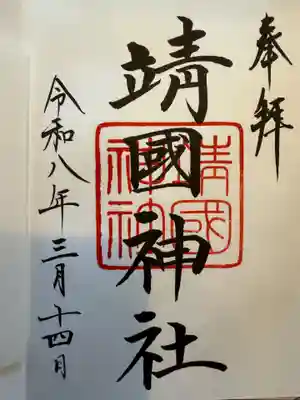 奉拝
靖國神社
靖國神社
令和八年三月十四日